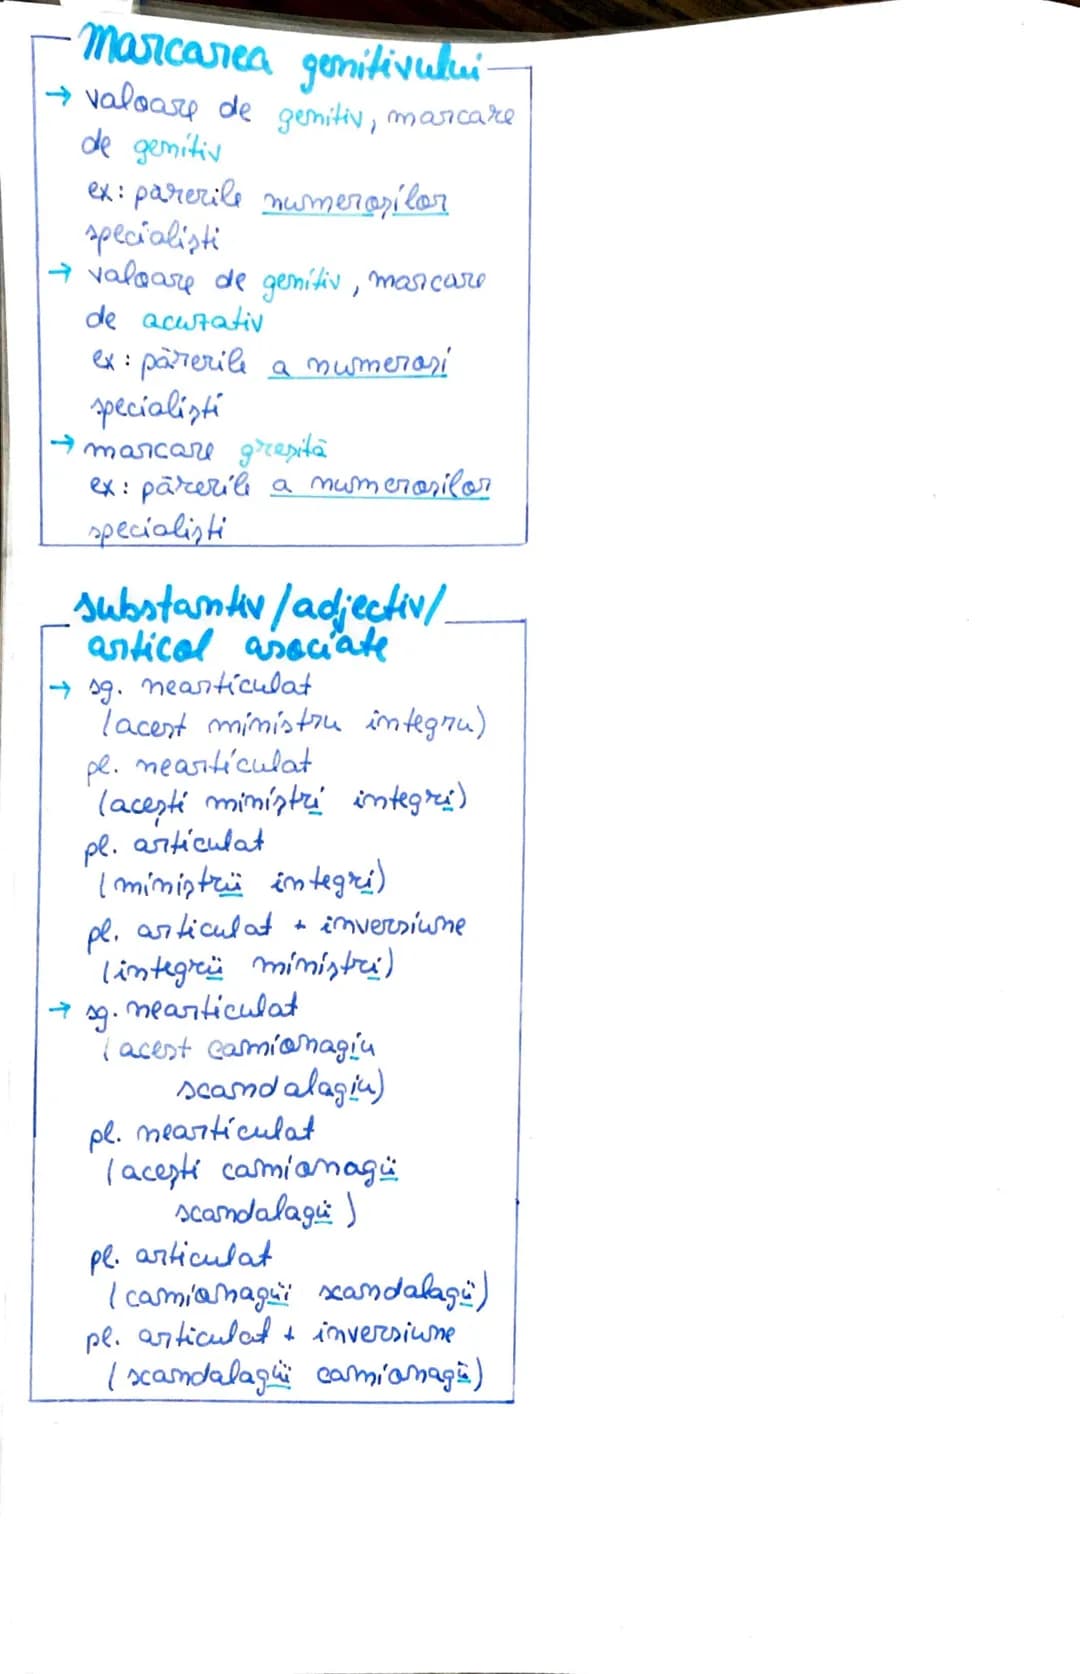 Marcarea genitivului
→ valoare de genitiv, marcare
de genitiv
ex: părerile numeroșilor
specialiști
→ valoare de genitiv, marcare
de acuzativ
ex: părerile a numeroși
specialiști
→ marcare greșită
ex: părerile a numeroșilor
specialiști
substantiv/adjectiv/
articol asociate
→ sg. nearticulat
(acest ministru integru)
pl. nearticulat
(acești miniștri integri)
pl. articulat
(miniștrii integri)
pl. articulat + inversiune
(integrii miniștri)
→ sg. nearticulat
(acest camionagiu
scandalagiu)
pl. nearticulat
(acești camionagii
scandalagii)
pl. articulat
(camionagiii scandalagii)
pl. articulat + inversiune
(scandalagiii camionagii)